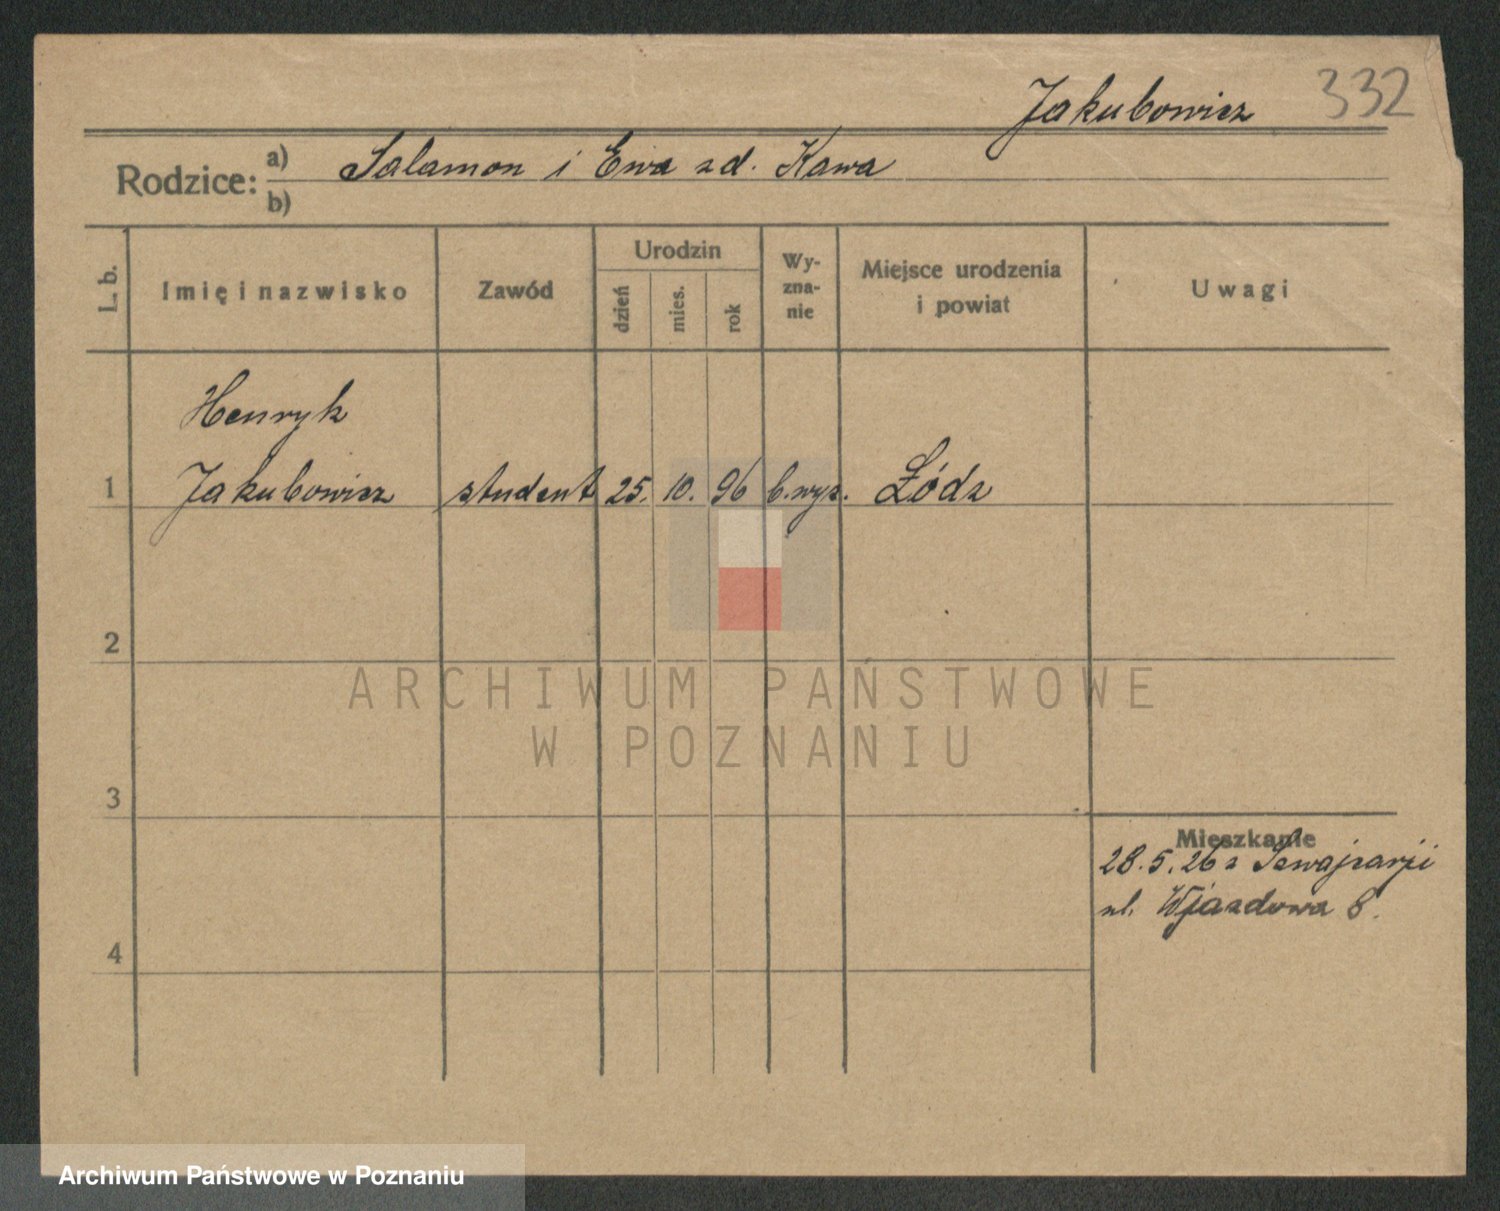 Jakubowicz 332
Rodzice: a) Salamon i Ewa zd. Kawa
b)
L. b. Imię i nazwisko Zawód Urodzin dzień mies. rok Wy-zna-nie Miejsce urodzenia i powiat Uwagi
Henryk
1 Jakubowicz student 25. 10. 96 b.wyz. Łódz
2
ARCHIWUM PAŃSTWOWE
W POZNANIU
3
Mieszkanie
28.5.26 z Szwajcarji
ul. Wjazdowa 8.
4
Archiwum Państwowe w Poznaniu